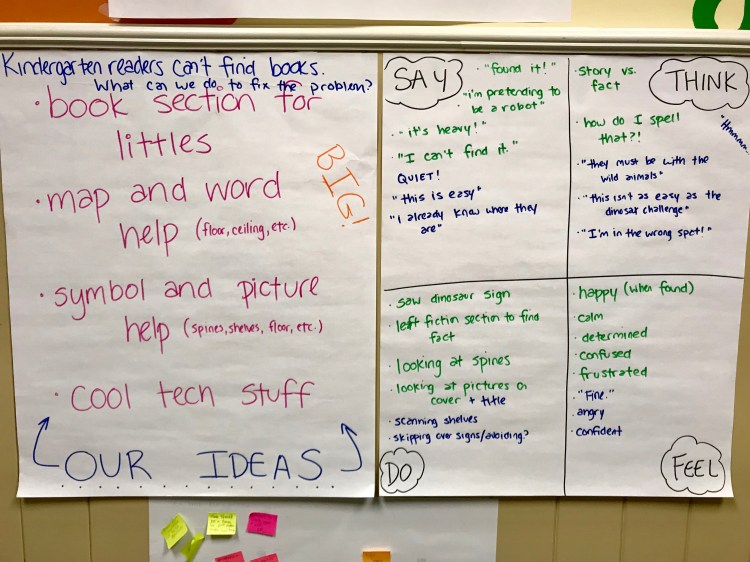 Kindergarten readers can't find books.
What can we do to fix the problem?
· book section for
littles
· map and word
help (floor, ceiling, etc.)
BIG!
· symbol and picture
help (spines, shelves, floor, etc.)
· cool tech stuff
OUR IDEAS
SAY
· "found it!"
· "i'm pretending to
be a robot"
- "it's heavy!"
· "I can't find it."
QUIET!
"this is easy"
"I already know where they
are"
THINK
· Story vs.
fact
· how do I spell
that?!
· "Hmmmm...
· "they must be with the
wild animals"
· "this isn't as easy as the
dinosar challenge"
· "I'm in the wrong spot!"
· saw dinosaur sign
· left fiction section to find
fact
· looking at spines
· looking at pictures on
cover + title
· scanning shelves
· skipping over signs/avoiding?
DO
· happy (when found)
· calm
· determined
· confused
· frustrated
· "Fine."
· angry
· confident
FEEL